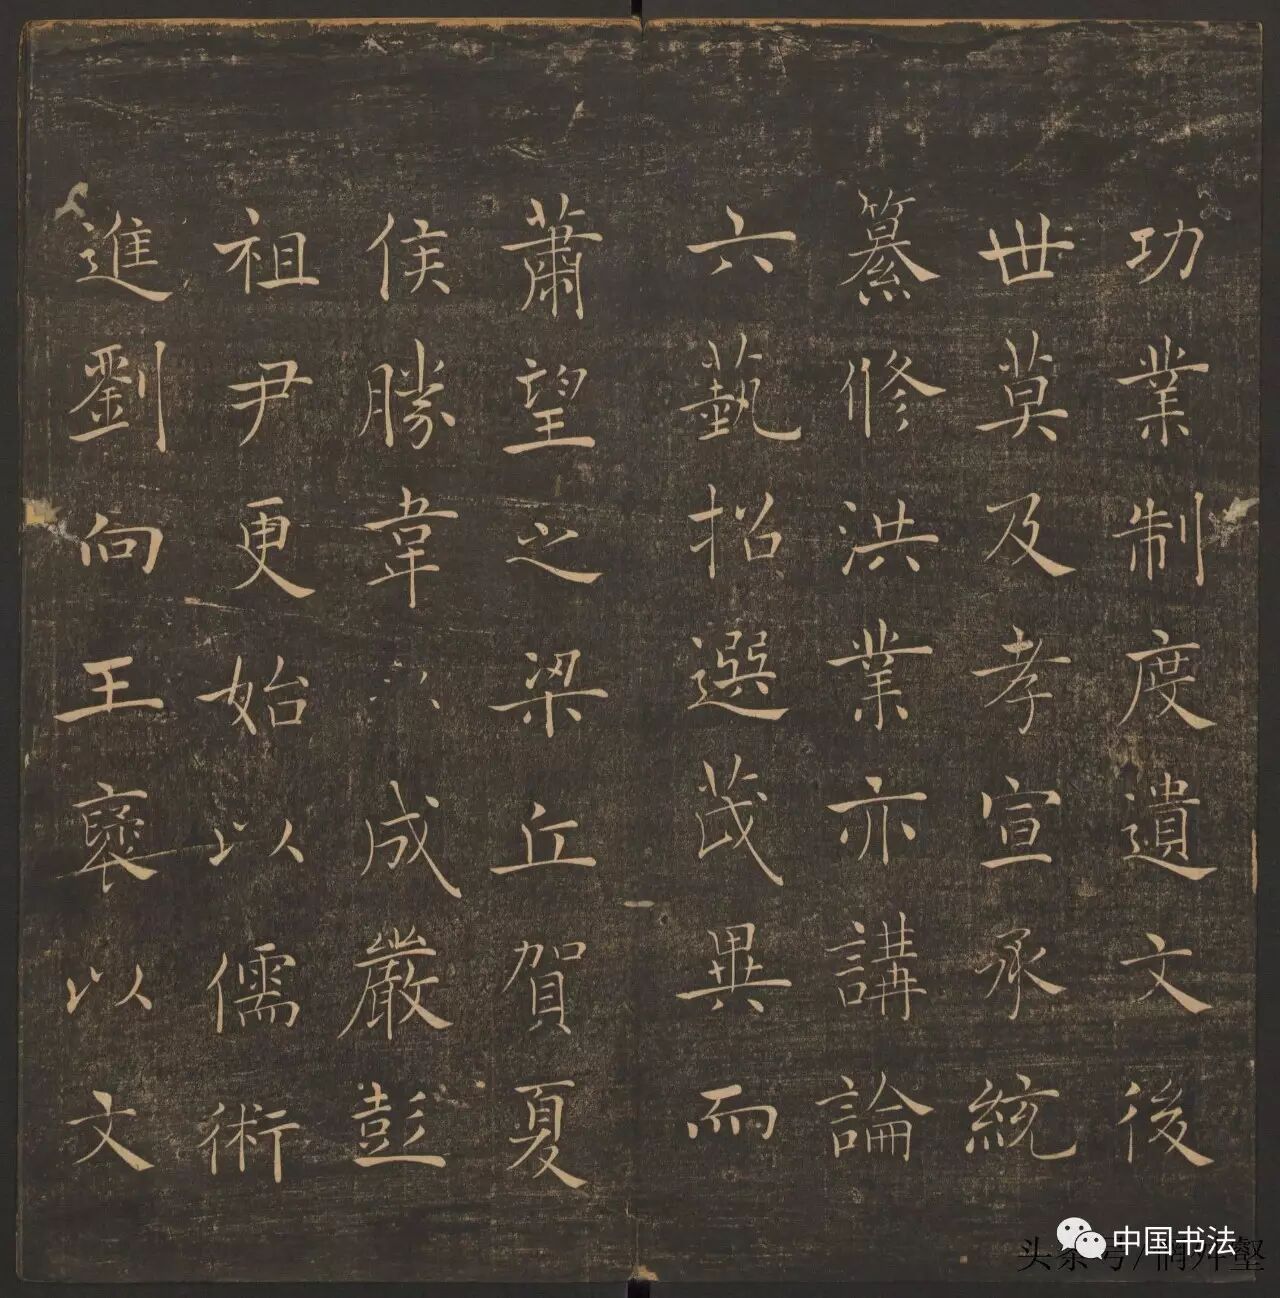 功業制度遺文後
世莫及孝宣承統
纂修洪業亦講論
六藝招選茂異而
蕭望之梁丘賀夏
侯勝韋成嚴彭
祖尹更始以儒術
進劉向王襃以文
中国书法